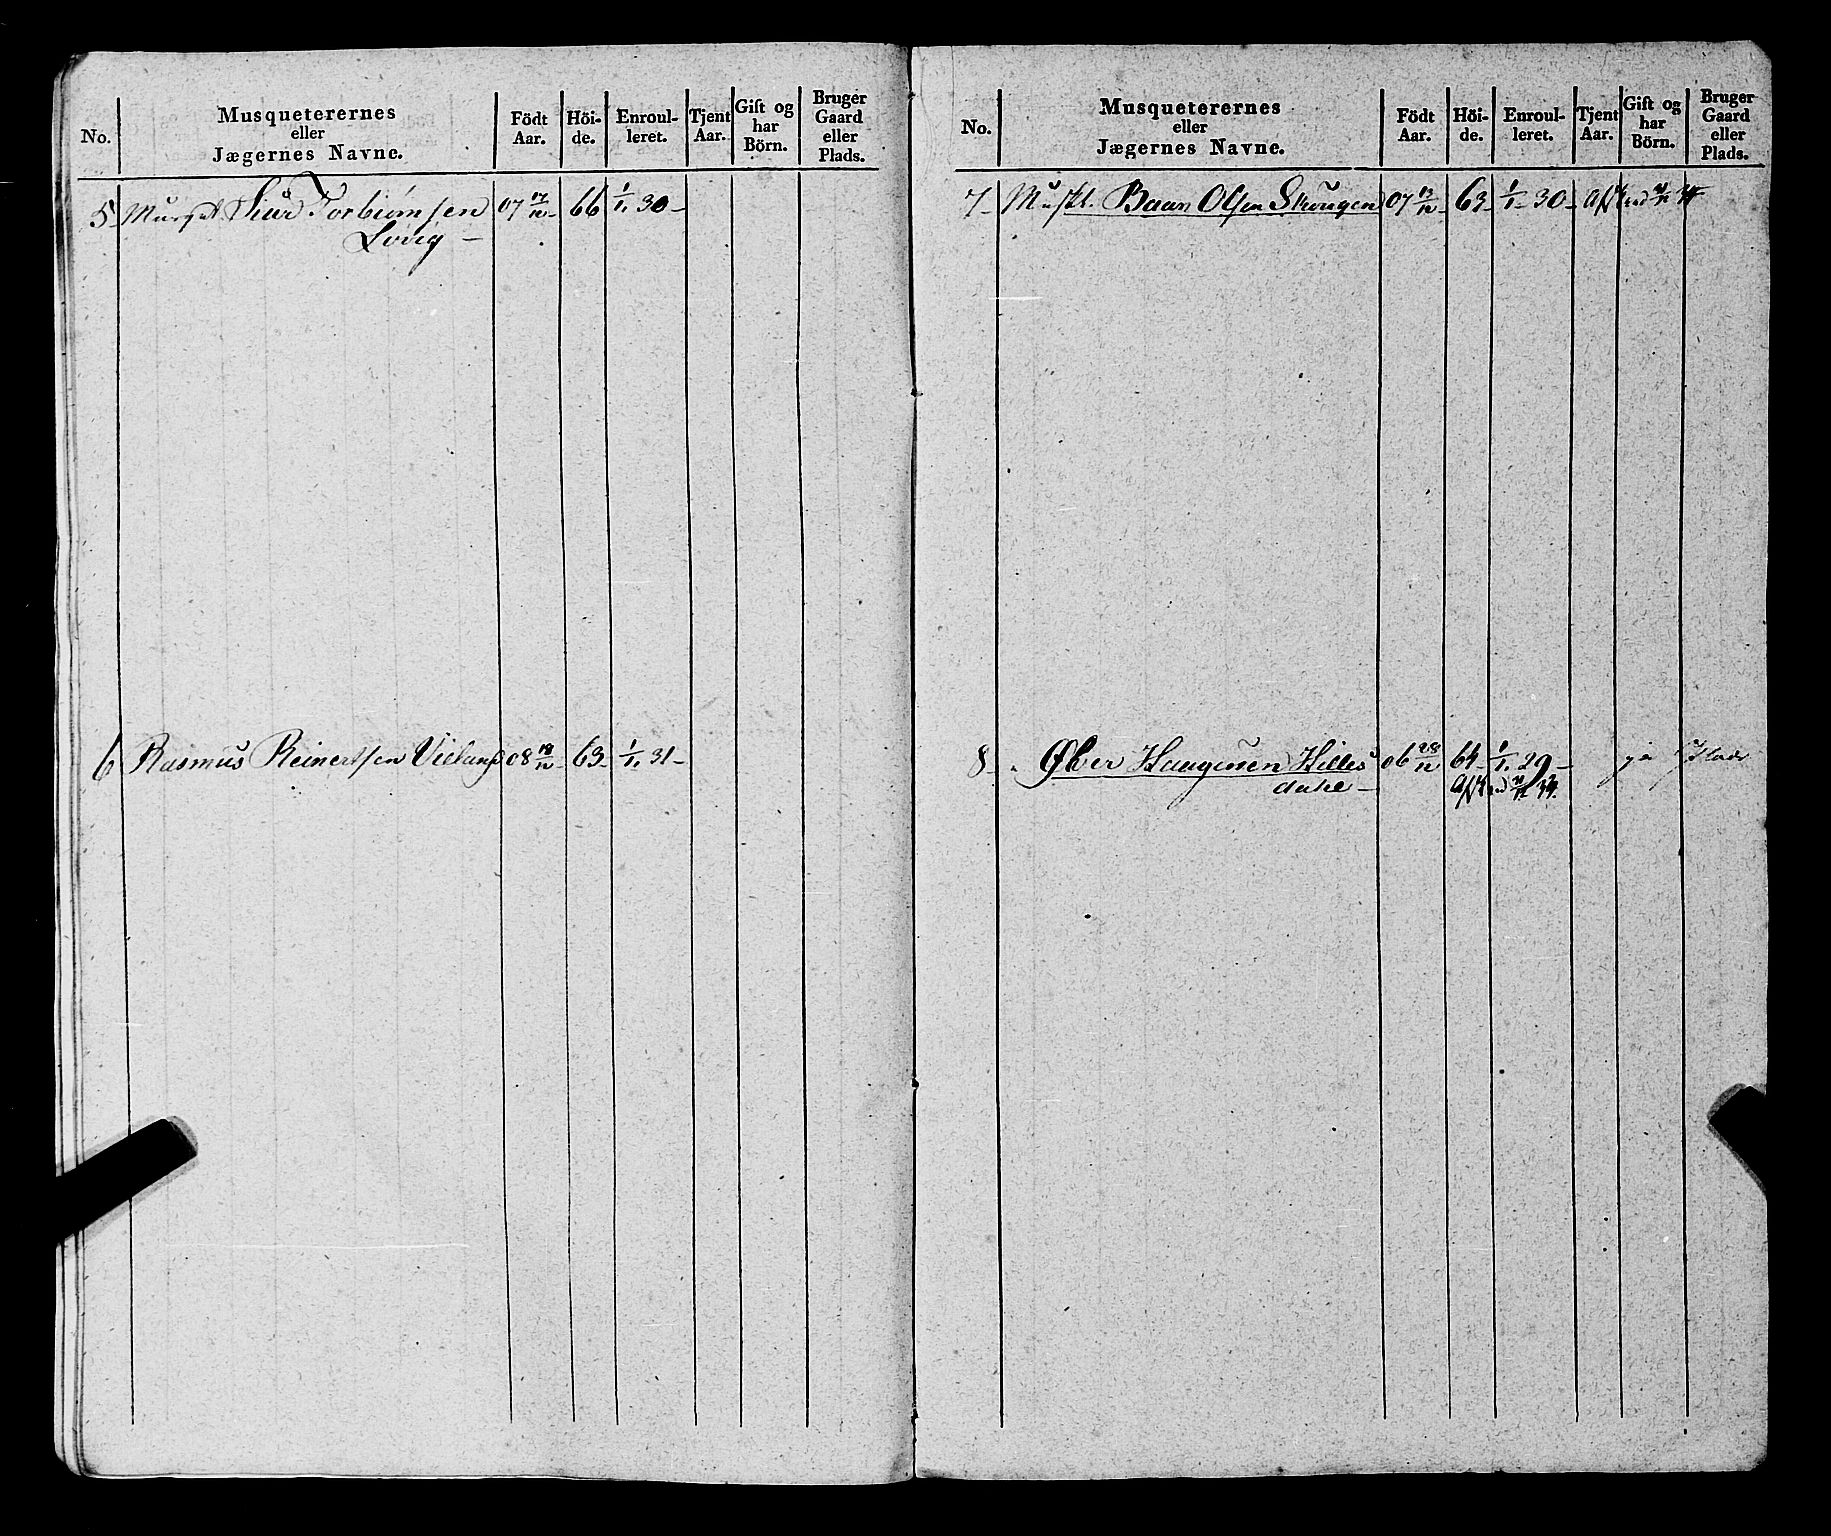 No. Musqueterernes eller Jægernes Navne. Födt Aar. Höi-de. Enroul-leret. Tjent Aar. Gift og har Börn. Bruger Gaard eller Plads.
5 Torbiørnsen 07 17/12 66 1/1 30
6 Rasmus Reinertsen 08 18/12 63 1/1 31
No. Musqueterernes eller Jægernes Navne. Födt Aar. Höi-de. Enroul-leret. Tjent Aar. Gift og har Börn. Bruger Gaard eller Plads.
7 Muskt. Baar Olsen Skougen 07 13/12 63 1/1 30
8 Haagensen Hilles 06 28/12 64 1/1 29 ja Plads
dahl